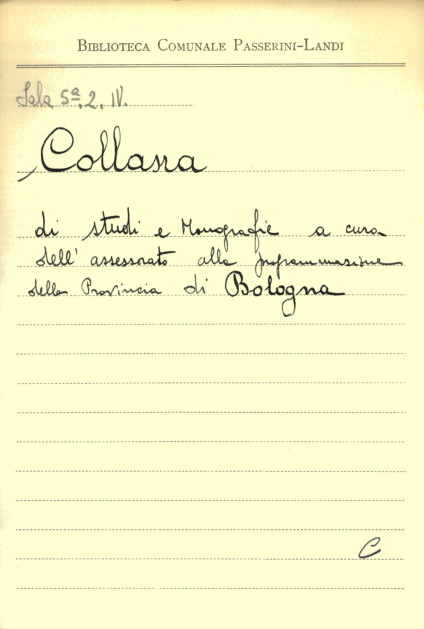 BIBLIOTECA COMUNALE PASSERINI-LANDI
Sala 5ª, 2, IV.
Collana
di studi e Monografie a cura
dell'assessorato alla programmazione
della Provincia di Bologna
C